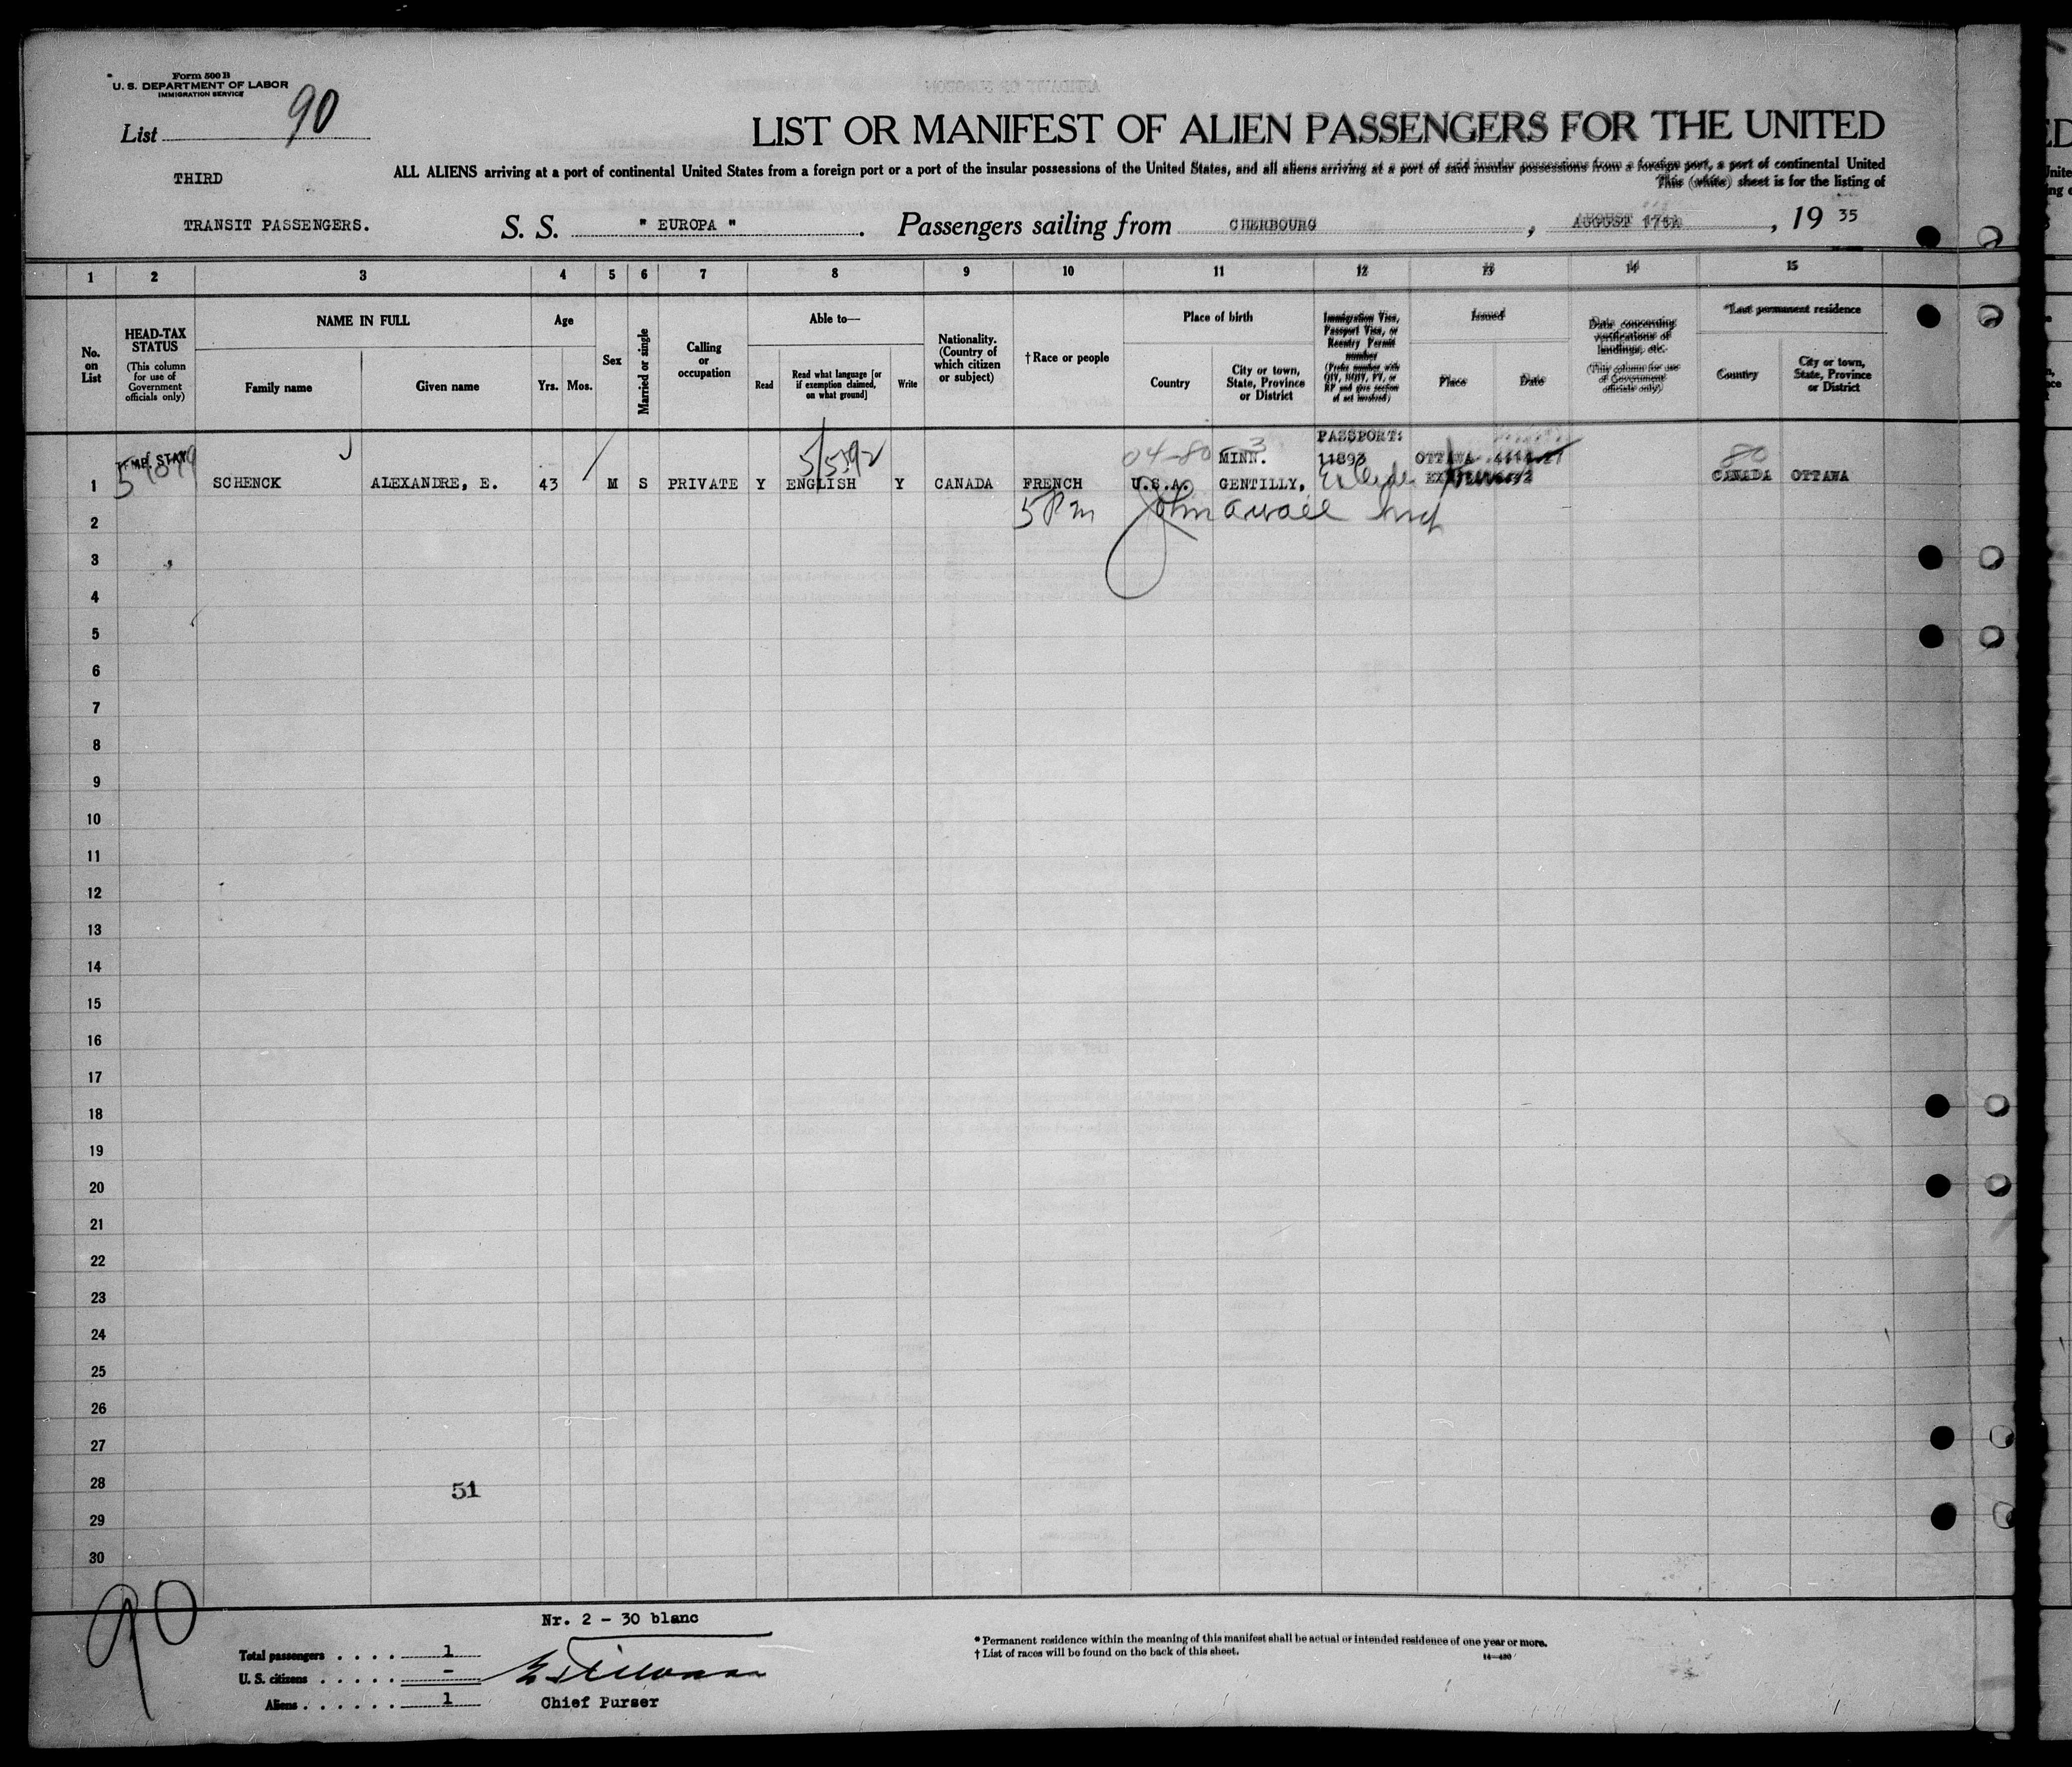 Form 500 B
U. S. DEPARTMENT OF LABOR
IMMIGRATION SERVICE
List 90
LIST OR MANIFEST OF ALIEN PASSENGERS FOR THE UNITED
ALL ALIENS arriving at a port of continental United States from a foreign port or a port of the insular possessions of the United States, and all aliens arriving at a port of said insular possessions from a foreign port, a port of continental United
This (white) sheet is for the listing of
THIRD
TRANSIT PASSENGERS.
S. S. " EUROPA ". Passengers sailing from CHERBOURG, AUGUST 17th, 19 35
1 2 3 4 5 6 7 8 9 10 11 12 13 14 15
No. on List
HEAD-TAX STATUS
(This column for use of Government officials only)
NAME IN FULL
Family name
Given name
Age
Yrs. Mos.
Sex
Married or single
Calling or occupation
Able to—
Read
Read what language [or if exemption claimed, on what ground]
Write
Nationality. (Country of which citizen or subject)
†Race or people
Place of birth
Country
City or town, State, Province or District
Immigration Visa, Passport Visa, or Reentry Permit number
(Prefix number with QIV, NQIV, PV, or RP and give section of act involved)
Issued
Place
Date
Data concerning verifications of landings, etc.
(This column for use of Government officials only)
*Last permanent residence
Country
City or town, State, Province or District
TEMP. STAY 5/5592 04-80 3 MINN. PASSPORT: 11893 OTTAWA 80
1 SCHENCK ALEXANDRE, E. 43 M S PRIVATE Y ENGLISH Y CANADA FRENCH U.S.A. GENTILLY, CANADA OTTAWA
2 5 Pm John
3
4
5
6
7
8
9
10
11
12
13
14
15
16
17
18
19
20
21
22
23
24
25
26
27
28 51
29
30
90
Nr. 2 - 30 blanc
Total passengers . . . . 1
U. S. citizens . . . . . -
Aliens . . . . . . 1
Chief Purser
* Permanent residence within the meaning of this manifest shall be actual or intended residence of one year or more.
† List of races will be found on the back of this sheet.
14—430